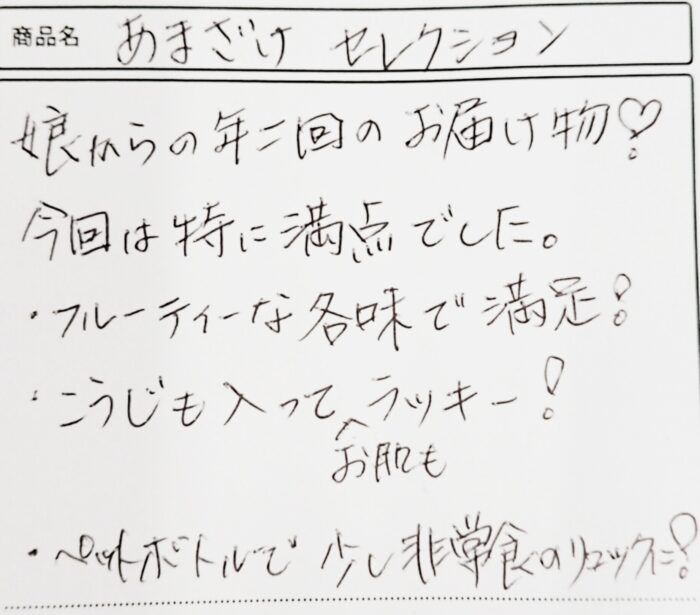 商品名 あまざけ セレクション
娘からの年二回のお届け物♡!
今回は特に満点でした。
・フルーティーな各味で満足!
・こうじも入ってラッキー!
お肌も
・ペットボトルで少し非常食のリュックに!